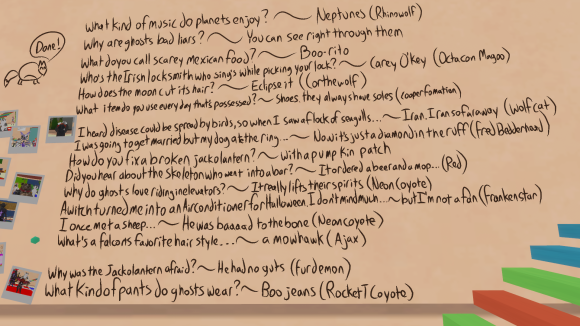 What kind of music do planets enjoy? ~ Neptunes (Rhinowolf)
Done!
Why are ghosts bad liars? ~ You can see right through them
What do you call scarey mexican food? ~ Boo-rito
Who's the Irish locksmith who sing's while picking your lock? ~ Carey O'key (Octacon Magoo)
How does the moon cut its hair? ~ Eclipse it (Corthewolf)
What item do you use everyday thats possessed? ~ Shoes. they always have soles (cooperfomation)
I heard disease could be spread by birds, so when I saw a flock of seagulls... ~ I ran. I ran so far away (wolfcat)
I was going to get married but my dog ate the ring... ~ Now its just a diamond in the ruff (Fred Bedderhead)
How do you fix a broken jackolantern? ~ with a pumpkin patch
Did you hear about the Skeleton who went into a bar? ~ It ordered a beer and a mop... (Red)
Why do ghosts love riding in elevators? ~ It really lifts their spirits (Neon Coyote)
A witch turned me into an Airconditioner for Halloween. I don't mind much... ~ but I'm not a fan (Frankenstar)
I once met a sheep... ~ He was baaaad to the bone (Neoncoyote)
What's a falcons favorite hair style... ~ a mowhawk (Ajax)
Why was the Jackolantern afraid? ~ He had no guts (furdemon)
What Kind of pants do ghosts wear? ~ Boo jeans (RocketTCoyote)